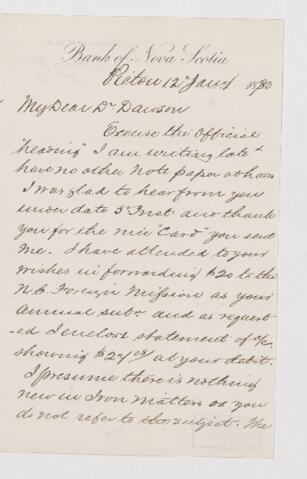 Bank of Nova Scotia
Pictou 12 Jany 1880
My Dear Dr Dawson
Excuse the Official
"heading" I am writing late &
have no other Note paper at hand
I was glad to hear from you
under date 5th Inst. and thank
you for the nice "Card" you sent
me. I have attended to your
wishes in forwarding $20 to the
N.S. Foreign Mission as your
annual subn and as request-
ed I enclose statement of a/c
showing $27.09 at your debit.
I presume there is nothing
new in Iron matters as you
do not refer to the subject. We